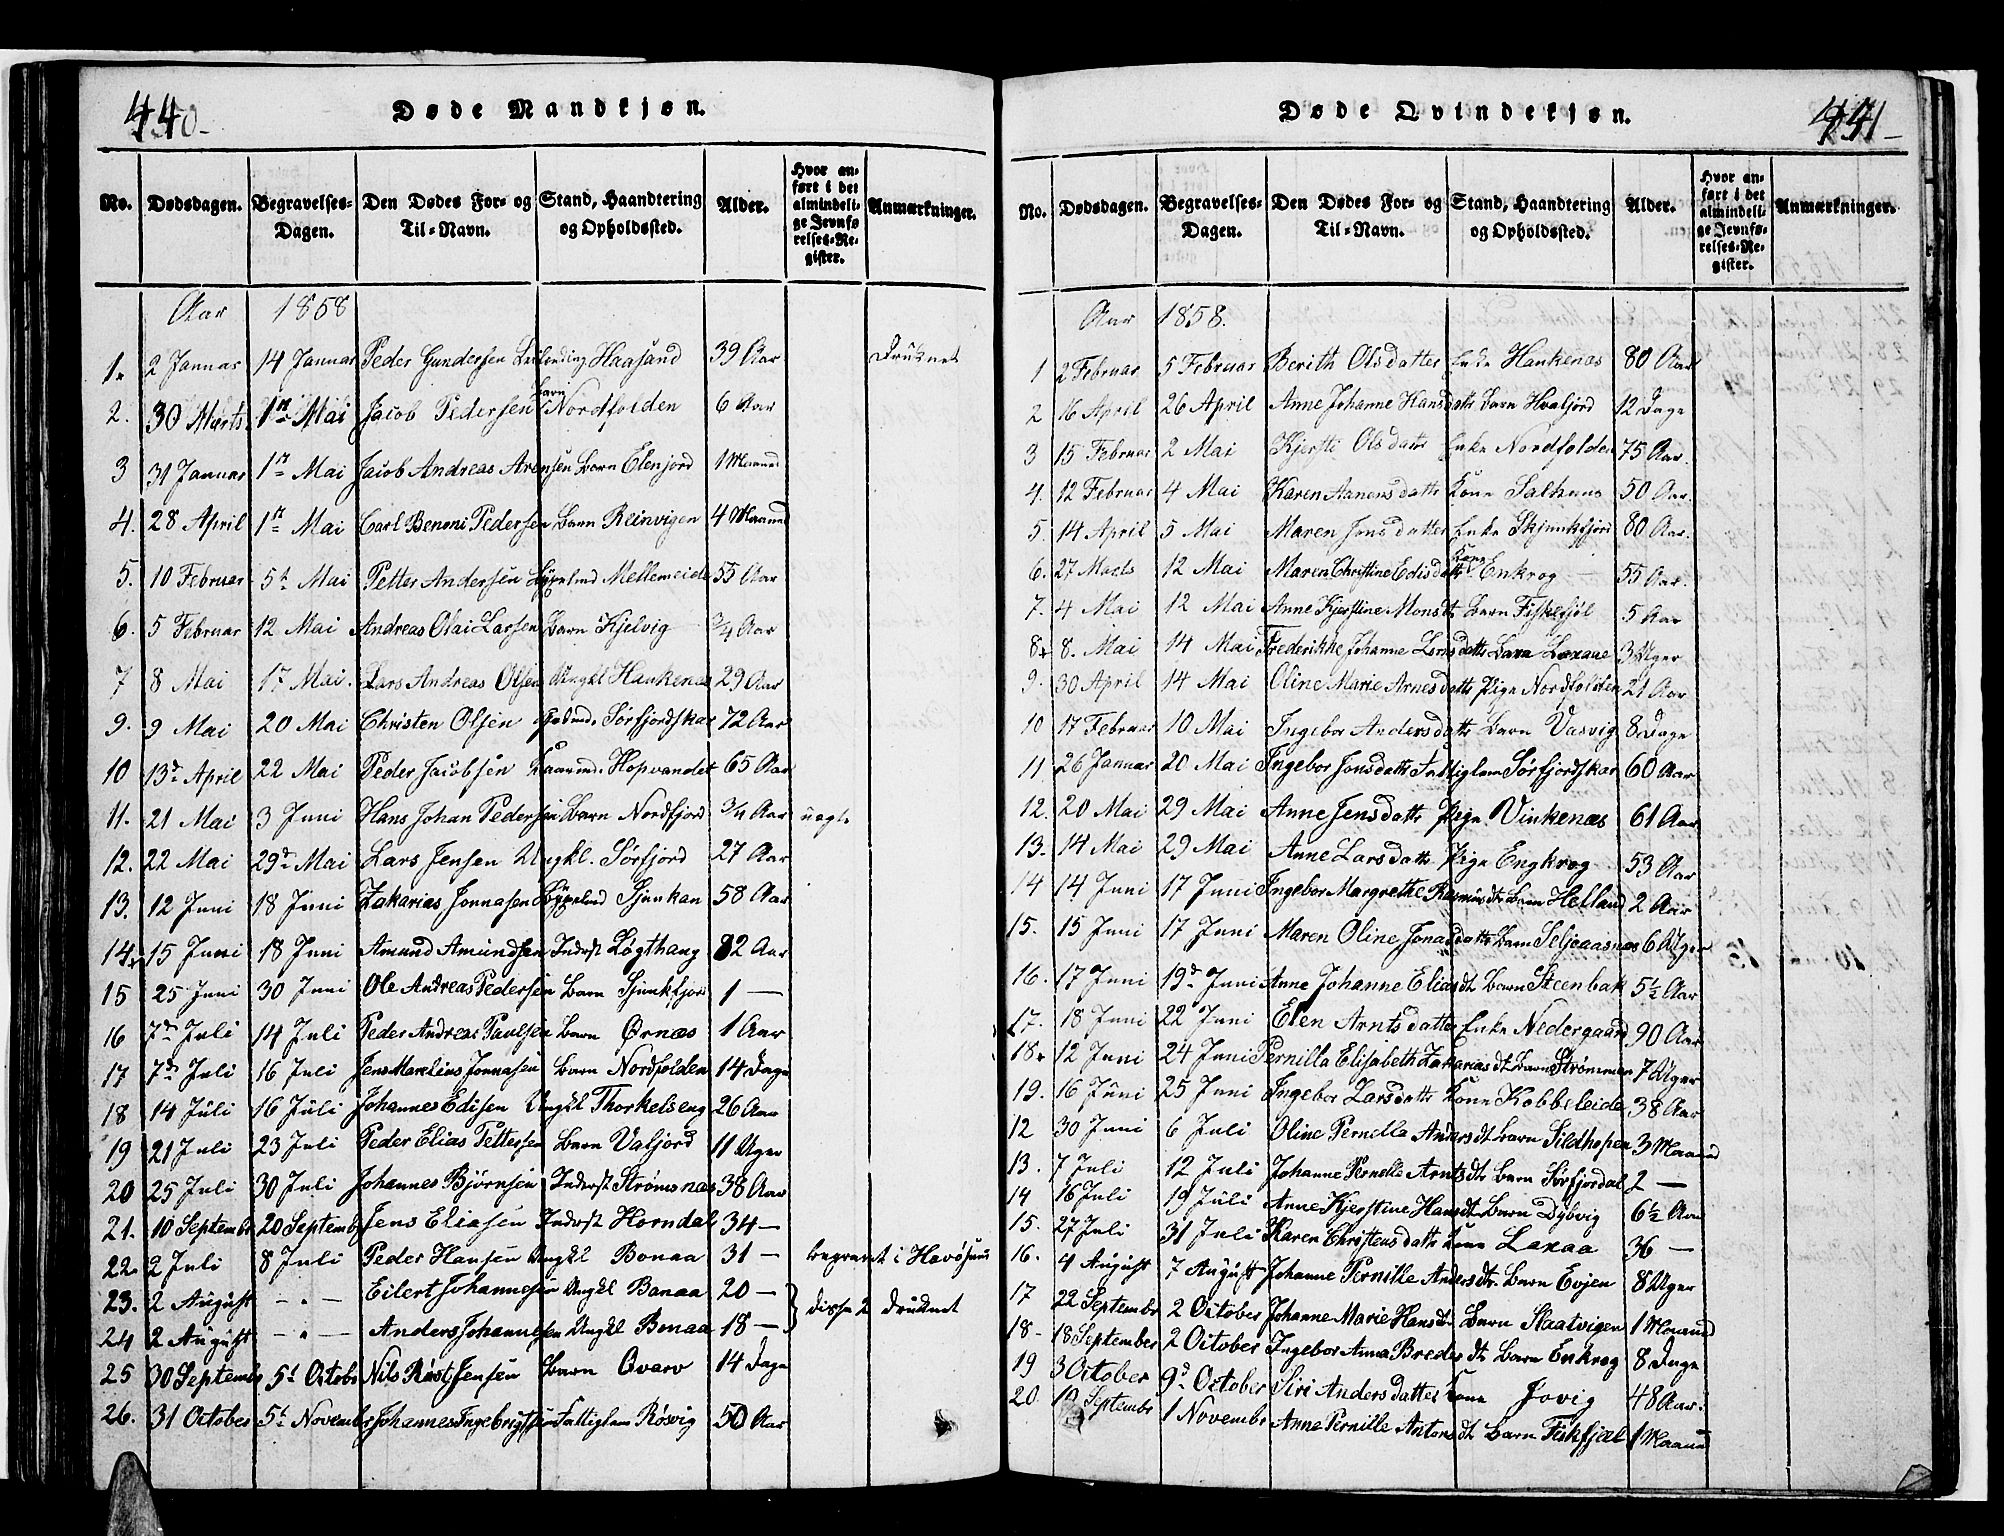 440.
Døde Mandkjøn.
No. Dødsdagen. Begravelses-Dagen. Den Dødes For- og Til-Navn. Stand, Haandtering og Opholdssted. Alder. Hvor anført i det almindelige Jevnførelses-Register. Anmærkninger.
Aar 1858
1. 2 Januar 14 Januar Peder Gundersen Leilending Haasand 39 Aar Druknet
2. 30 Marts 1ste Mai Jacob Pedersen Barn Nordfolden 6 Aar
3 31 Januar 1ste Mai Jacob Andreas Arensen Barn Elenjord 1 Maaned
4. 28 April 1ste Mai Carl Benoni Pedersen Barn Reinvigen 4 Maaned
5. 10 Februar 5t Mai Petter Andersen Mellemeide 55 Aar
6. 5 Februar 12 Mai Andreas Olai Larsen Barn Kjelvig 3/4 Aar
7 8 Mai 17 Mai. Lars Andreas Olsen Ungkl Hankenas 29 Aar
9. 9 Mai 20 Mai Christen Olsen Sørfjordskar 72 Aar
10 13de April 22 Mai Peder Jacobsen Kaarmd. Hopvandet 65 Aar
11. 21 Mai 3 Juni Hans Johan Pedersen Barn Nordfjord 3/4 Aar uægte
12. 22 Mai 29d Mai Lars Jensen Ungkl. Sørfjord 27 Aar
13. 12 Juni 18 Juni Zakarias Jonnasen Sjunkan 58 Aar
14. 15 Juni 18 Juni Amund Amundsen Inderst Løgthaug 82 Aar
15 25 Juni 30 Juni Ole Andreas Pedersen Barn Sjunkfjord 1 —
16 7de Juli 14 Juli Peder Andreas Paulsen Barn Ørnæs 1 Aar
17 7de Juli 16 Juli Jens Marelius Jonnasen Barn Nordfolden 14 Dage
18 14 Juli 16 Juli Johannes Edisen Ungkl Thorkelseng 26 Aar
19 21 Juli 23 Juli Peder Elias Pettersen Barn Valjord 11 Uger
20 25 Juli 30 Juli Johannes Bjørnsen Inderst Strømsnas 38 Aar
21. 10 Septembr 20 Septembr Jens Eliasen Inderst Horndal 34 —
22. 2 Juli 8 Juli Peder Hansen Ungkl Bonaa 31 — begravet i Havøsund
23. 2 August — " — Eilert Johannesen Ungkl Bonaa 20 — } disse 2 druknet
24 2 August — " — Anders Johannesen Ungkl Bonaa 18 —
25 30 Septembr 5t Octobr Nils Røst Jensen Barn Qvarv 14 Dage
26. 31 October 5t Novembr Johannes Ingebrigtsen Fattiglem Røsvig 50 Aar
441
Døde Qvindekjøn.
No. Dødsdagen. Begravelses-Dagen. Den Dødes For- og Til-Navn. Stand, Haandtering og Opholdssted. Alder. Hvor anført i det almindelige Jevnførelses-Register. Anmærkninger.
Aar 1858.
1 2 Februar 5 Februar Berith Olsdatter Enke Hankenas 80 Aar
2 16 April 26 April Anne Johanne Hansdatt Barn Hvaljord 12 Dage
3 15 Februar 2 Mai Kjersti Olsdatt Enke Nordfolden 75 Aar.
4. 12 Februar 4 Mai Karen Aanensdatt Kone Salhuus 50 Aar.
5. 14 April 5 Mai Maren Jonsdatter Enke Skjunkfjord 80 Aar.
6. 27 Marts 12 Mai Maren Christine Edisdatt Kone Enkrog 55 Aar.
7. 4 Mai 12 Mai Anne Kjerstine Monsdt Barn Fiskefjøl 5 Aar
8. 8. Mai 14 Mai Frederikke Johanne Larsdatt Barn Laxaae 3 Uger
9. 30 April 14 Mai Oline Marie Arnesdatt Pige Nordfolden 21 Aar
10 17 Februar 10 Mai Ingebor Andersdatt Barn Vasvig 8 Dage
11 26 Januar 20 Mai Ingebor Jonsdatt Fattiglem Sørfjordskar 60 Aar
12. 20 Mai 29 Mai Anne Jensdatt Pige Vinkenæs 61 Aar
13. 14 Mai 29 Mai Anne Larsdatt Pige Engkrog 53 Aar
14 14 Juni 17 Juni Ingebor Margrethe Rasmusdt Barn Helland 2 Aar
15. 15 Juni 17 Juni Maren Oline Jonasdatt Barn Seljeaasnæs 6 Uger
16. 17 Juni 19de Juni Anne Johanne Eliasdt Barn Steenbak 5½ Aar
17. 18 Juni 22 Juni Elen Arntsdatter Enke Nedergaard 90 Aar
18. 12 Juni 24 Juni Pernilla Elisabeth Zakariasdt Barn Strømmen 7 Uger
19. 16 Juni 25 Juni Ingebor Larsdatt Kone Kobbeleide 38 Aar
12 30 Juni 6 Juli Oline Pernella Andersdt Barn Sildhopen 3 Maaned
13. 7 Juli 12 Juli Johanne Pernelle Arntsdtr Barn Sørfjordal 2 —
14 16 Juli 19 Juli Anne Kjerstine Hansdt Barn Dybvig 6½ Aar
15. 27 Juli 31 Juli Karen Christensdatt Kone Laxaa 36 —
16. 4 August 7 August Johanne Pernille Andersdtr. Barn Evjen 8 Uger
17 22 Septembr 2 October Johanne Marie Hansdt. Barn Slaatvigen 1 Monaad
18- 18 September 2 October Ingebor Anna Bredesdt Barn Enkrog 8 Dage
19 3 October 9d October Siri Andersdatter Kone Jovig 48 Aar.
20 19 Septembr 1 Novembr Anne Pernille Antonsdt Barn Fiskfjæl 1 Maaned